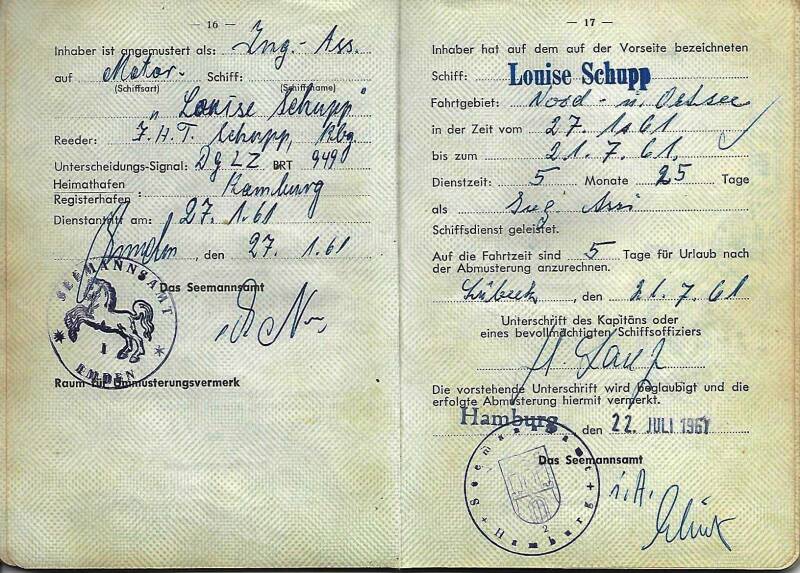 — 16 —
Inhaber ist angemustert als: Ing.-Ass.
auf Motor- Schiff:
(Schiffsart) (Schiffsname)
"Louise Schupp"
Reeder: J.H.T. Schupp, Hbg.
Unterscheidungs-Signal: DgLZ BRT 949
Heimathafen
Registerhafen: Hamburg
Dienstantritt am: 27. 1. 61
Emden, den 27. 1. 61
Das Seemannsamt
SEEMANNSAMT
1
EMDEN
Raum für Ummusterungsvermerk
— 17 —
Inhaber hat auf dem auf der Vorseite bezeichneten
Schiff: Louise Schupp
Fahrtgebiet: Nord- u. Ostsee
in der Zeit vom 27. 1. 61
bis zum 21. 7. 61.
Dienstzeit: 5 Monate 25 Tage
als Ing. Assi
Schiffsdienst geleistet.
Auf die Fahrtzeit sind 5 Tage für Urlaub nach
der Abmusterung anzurechnen.
Lübeck, den 21. 7. 61
Unterschrift des Kapitäns oder
eines bevollmächtigten Schiffsoffiziers
Die vorstehende Unterschrift wird beglaubigt und die
erfolgte Abmusterung hiermit vermerkt.
Hamburg den 22. JULI 1961
Das Seemannsamt
Seemannsamt
2
Hamburg
i.A.